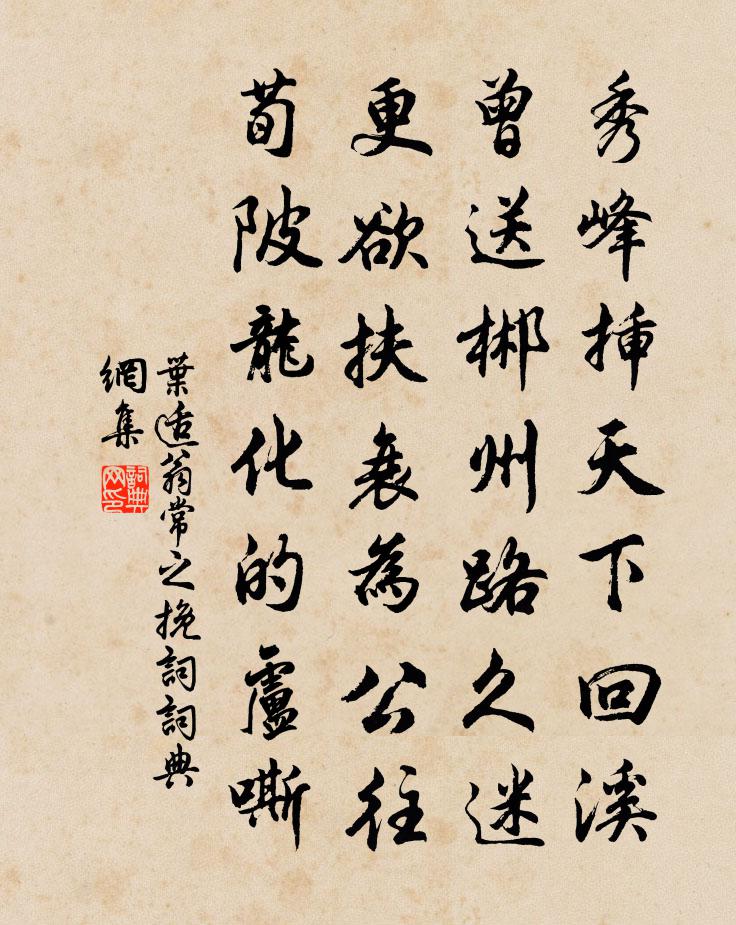 秀峰揷天下回溪
曾送郴州路久迷
更欲扶衰為公往
荀陂龍化的盧嘶
葉適翁常之挽詞詞典
網集
詞典網印